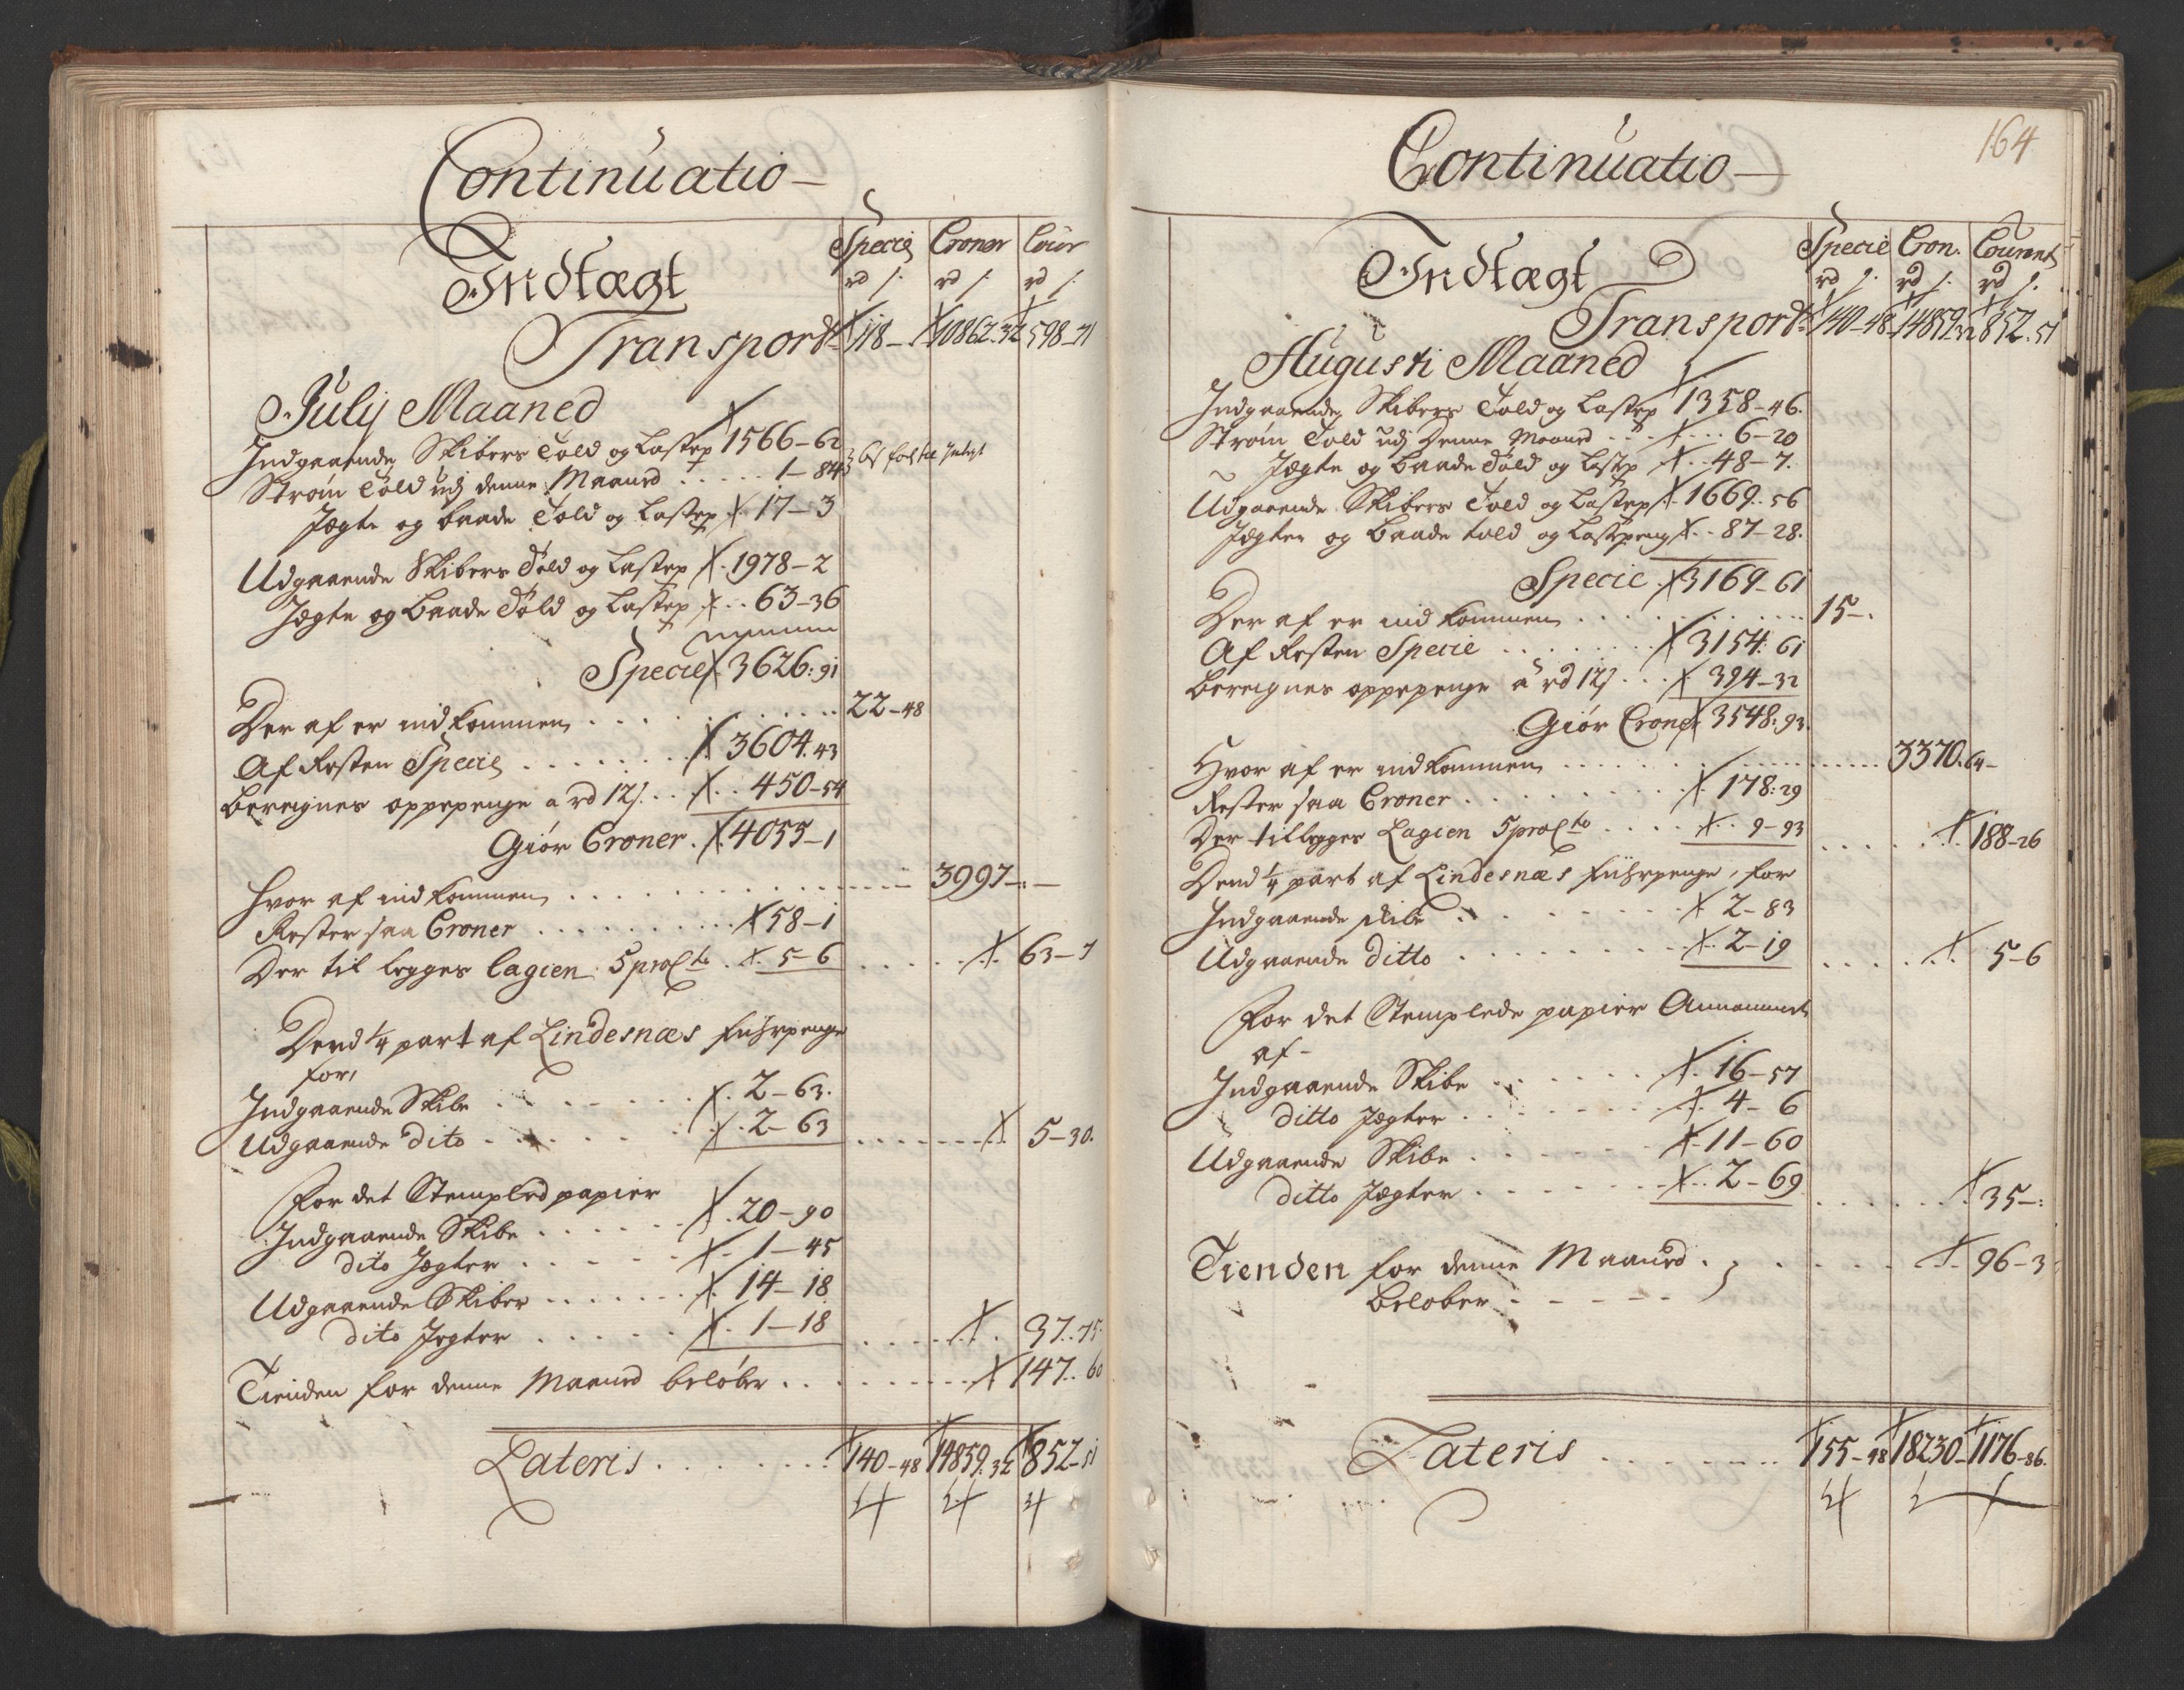 Continuatio
Indtægt
Specie Croner Cour
rd s. rd s. rd s.
Transport 118 - 10862-32 598-71
July Maaned
Indgaaende Skibers Told og Lastep 1566-62
Strøm Told udj denne Maaned ..... 1-84
Jægte og baade Told og Lastep 17-3
Udgaaende Skibers Told og Lastep 1978-2
Jægte og Baade Told og Lastep ... 63-36
Specie 3626:91
Der af er ind kommen ........ 22-48
Af Resten Specie ........ 3604.43
Beregnes oppepenge a rd 12s ... 450-54
Giør Croner . 4055-1
Hvor af indkommen ........ 3997-:-
Rester saa Croner .......... 58-1
Der til legges lagien 5 proCto . 5-6 ..... 63-7
Dend 1/4 part af Lindesnæs fuhrpenge
for,
Indgaaende Skibe ...... 2-63.
Udgaaende dito ...... 2-63 ....... 5-30.
For det Stempled papier
Indgaaende Skibe ..... 20-90
dito Jægter ..... 1-45
Udgaaende Skiber ...... 14-18
dito Jegter ..... 1-18 ..... 37..75.
Tienden for denne Maaned beløber ........ 147..60
Lateris ....... 140-48 14859.32 852-51
164
Continuatio
Indtægt
Specie Cron. Courant
rd s. rd s. rd s.
Transport 140-48 14859-32 852.51
Augusti Maaned
Indgaaende Skibers Told og Lastep 1358-46.
Strøm Told udj Denne Maaned ...... 6-20
Jægte og Baade Told og Lastep .. 48-7.
Udgaaende Skibers Told og Lastep 1669..56
Jægter og Baade told og Lastpeng .. 87-28.
Specie 3169-61
Der af er indkommen .......... 15-.
Af Resten Specie ........ 3154:61
Beregnes oppepenge a rd 12s ... 394-32
Giør Croner 3548:93.
Hvor af er indkommen ............ 3370.64-
Rester saa Croner ........ 178:29
Der tillegges Lagien 5 proCto .... 9-93 ...... 188-26
Dend 1/4 part af Lindesnæs fuhrpenge, for
Indgaaende skibe ...... 2-83
Udgaaende ditto ....... 2-19 ..... 5-6
For det Stemplede papier Annammet
af-
Indgaaende Skibe ...... 16-57
ditto Jægter ....... 4-6
Udgaaende Skibe ...... 11-60
ditto Jægter ...... 2-69 ...... 35-:
Tienden for denne Maaned ....... 96-3
beløber - - - - -
Lateris ....... 155-48 18230- 1176-86.